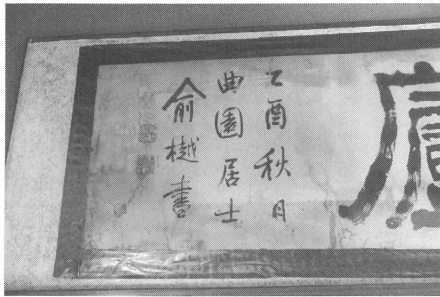 乙酉秋月
曲園居士
俞樾書